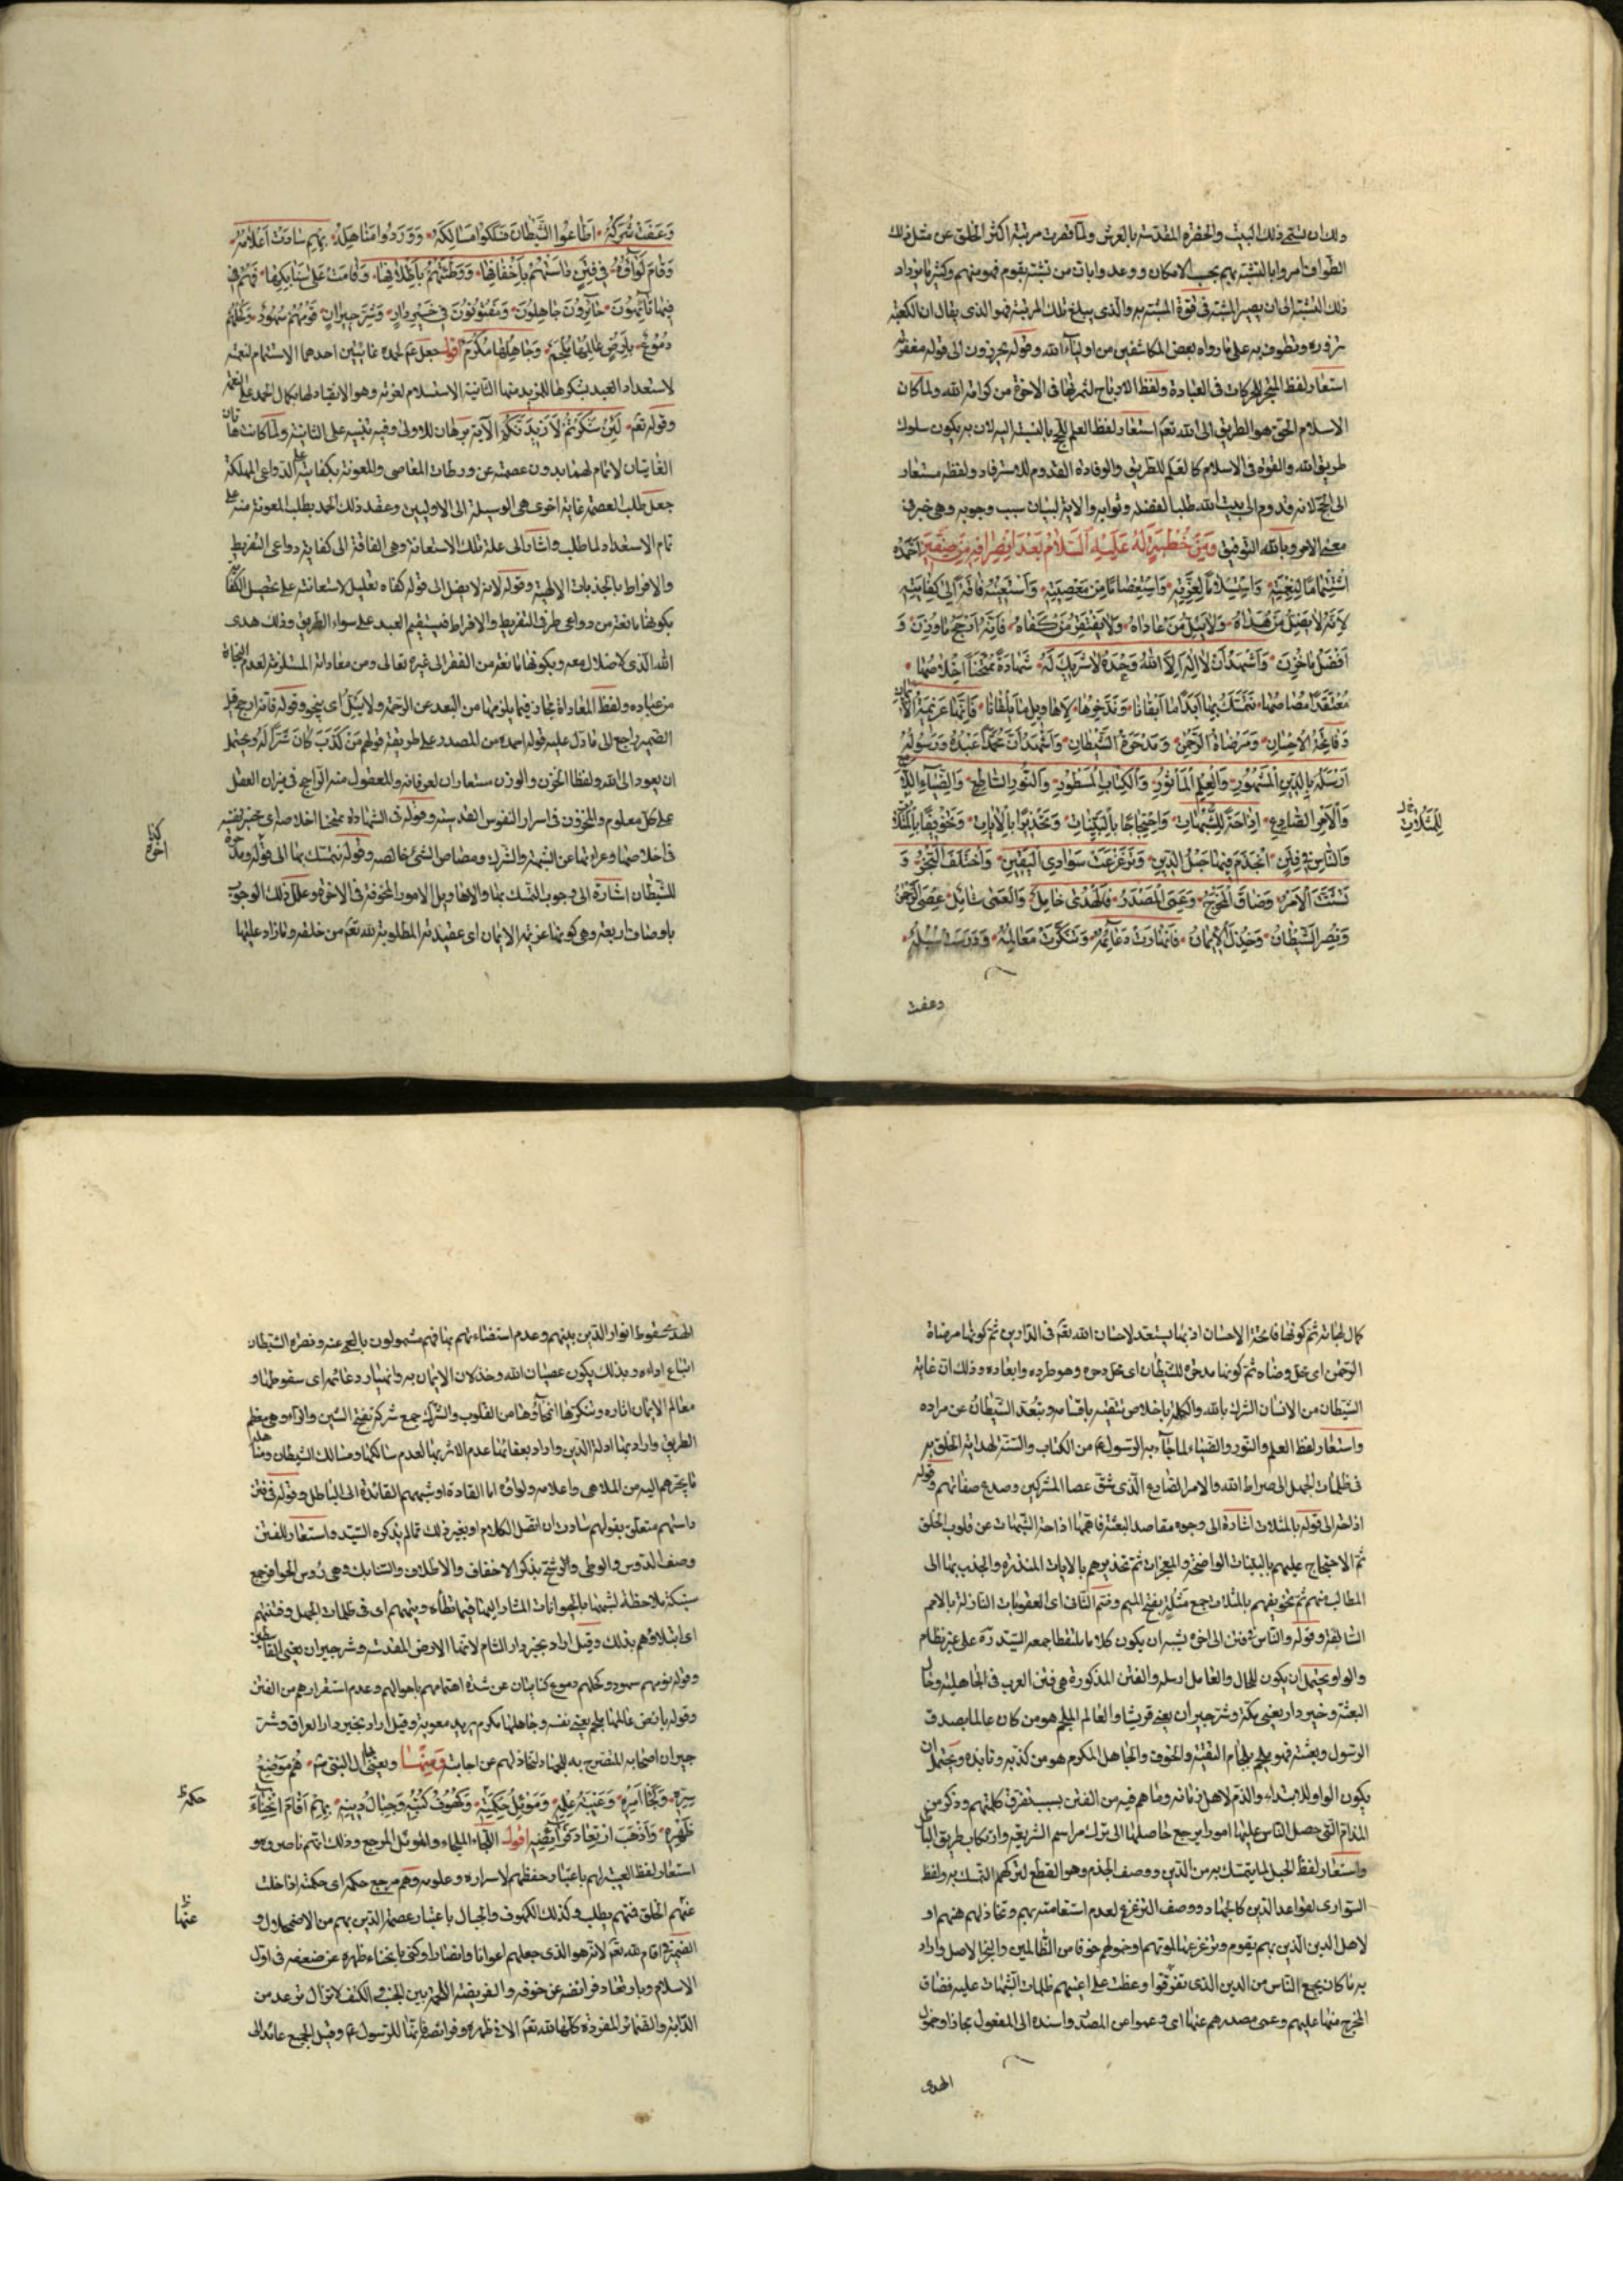 ولك ان تسمى ذلك البيت والحضرة المقدسة بالعرش ولما قصرت مرتبة اكثر الخلق عن مثل ذلك
الطواف امروا بالتشبه بهم بحسب الامكان ووعدوا بان من تشبه بقوم فهو منهم وكثيرا ما يزداد
ذلك التشبه الى ان يصير المشبه فى قوة المشبه به والذى يبلغ تلك المرتبة فهو الذى يقال ان الكعبة
تزوره وتطوف به على ما رواه بعض المكاشفين من اولياء الله وقوله يحرزون الى قوله مغفرته
استعار لفظ المتجر للحركات فى العبادة ولفظ الارباح لثمرتها فى الاخرة من كرامة الله ولما كان
الاسلام الحق هو الطريق الى الله تعم استعار لفظ العلم للحج بالنسبة اليه لان به يكون سلوك
طريق الله والقوة فى الاسلام كالعلم للطريق والوفادة القدوم للاسترفاد ولفظه مستعار
الى الحج لانه قدوم الى بيت الله طلبا لفضله وثوابه والاية لبيان سبب وجوبه وهى خبر فى
معنى الامر وبالله التوفيق ومن خطبة له عليه السلام بعد انصرافه من صفين احمده
استتماما لنعمته واستسلاما لعزته واستعصاما من معصيته واستعينه فاقة الى كفايته
لانه لا يضل من هداه ولا يئل من عاداه ولا يفتقر من كفاه فانه ارجح ما وزن و
افضل ما خزن واشهد ان لا اله الا الله وحده لا شريك له شهادة ممتحنا اخلاصها
معتقدا مصاصها نتمسك بها ابدا ما ابقانا وندخرها لاهاويل ما يلقانا فانها عزيمة الايمان
وفاتحة الاحسان ومرضاة الرحمن ومدحرة الشيطان واشهد ان محمدا عبده ورسوله
ارسله بالدين المشهور والعلم الماثور والكتاب المسطور والنور الساطع والضياء اللامع
والامر الصادع ازاحة للشبهات واحتجاجا بالبينات وتحذيرا بالايات وتخويفا بالمثلات
للمثلات
والناس فى فتن انجذم فيها حبل الدين وتزعزعت سوارى اليقين واختلف النجر و
تشتت الامر وضاق المخرج وعمى المصدر فالهدى خامل والعمى شامل عصى الرحمن
ونصر الشيطان وخذل الايمان فانهارت دعائمه وتنكرت معالمه ودرست سبله
وعفت
وعفت شركه اطاعوا الشيطان فسلكوا مسالكه ووردوا مناهله بهم سارت اعلامه
وقام لواؤه فى فتن داستهم باخفافها ووطئتهم باظلافها وقامت على سنابكها فهم فى
فيها تائهون حائرون جاهلون ومفتونون فى خير دار وشر جيران نومهم سهود وكحلهم
دموع بارض عالمها ملجم وجاهلها مكرم اقول جعل عم لحمده غايتين احدهما الاستتمام لنعمته
لاستعداد العبد بشكرها للمزيد منها الثانية الاستسلام لعزته وهو الانقياد لها بكمال الحمد على النعمة
وقوله تعم لئن شكرتم لازيدنكم الآية برهان للاولى وفيه تنبيه على الثانية ولما كانت هاتان
الغايتان لا تتمام لهما بدون عصمته عن ورطات المعاصى والمعونة بكفايته على الدواعى المهلكة
جعل طلب العصمة غاية اخرى هى الوسيلة الى الاوليين وعقد ذلك الحمد بطلب المعونة منه على
تمام الاستعداد لما طلب واشار الى علة تلك الاستعانة وهى الفاقة الى كفايته دواعى التفريط
والافراط بالجذبات الالهية وقوله لانه لا يضل الى قوله كفاه تعليل لاستعانته على تحصيل الكفاية
بكونها مانعة من دواعى طرفى التفريط والافراط فيستقيم العبد على سواء الطريق وذلك هدى
الله الذى لا ضلال معه وبكونها مانعة من الفقر الى غيره تعالى ومن معاداته المستلزمة لعدم النجاة
من عباده ولفظ المعاداة مجاز فيما يلزمها من البعد عن الرحمة ولا يئل اى ينجو وقوله فانه ارجح قيل
الضمير راجع الى ما دل عليه قوله احمده من المصدر على طريقة قولهم من كذب كان شرا له ويحتمل
ان يعود الى الله ولفظا الخزن والوزن مستعاران لعرفانه والمعقول منه الراجح فى ميزان العقل
على كل معلوم والمخزون فى اسرار النفوس القدسية وقوله فى الشهادة ممتحنا اخلاصها اى مختبر نفسه
فى اخلاصها وعراءها عن الشبهة والشرك ومصاص الشئ خالصه وقوله نتمسك بها الى قوله ومدحرة
كذا اخره
للشيطان اشارة الى وجوب التمسك بها والاهاويل الامور المخوفة فى الاخرة وعلل ذلك الوجوب
باوصاف اربعة وهى كونها عزيمة الايمان اى عقيدته المطلوبة لله تعم من خلقه وما زاد عليها
كمال لها ثم كونها فاتحة الاحسان اذ بها يستعد لاحسان الله تعم فى الدارين ثم كونها مرضاة
الرحمن اى محل رضاه ثم كونها مدحرة للشيطان اى محل دحره وهو طرده وابعاده وذلك ان غاية
الشيطان من الانسان الشرك بالله والكلمة باخلاص تنفيه باقسامه وتبعد الشيطان عن مراده
واستعار لفظ العلم والنور والضياء لما جاء به الرسول ص من الكتاب والسنة لهداية الخلق به
فى ظلمات الجهل الى صراط الله والامر الصادع الذى شق عصا المشركين وصدع صفاتهم وقوله
ازاحة الى قوله بالمثلات اشارة الى وجوه مقاصد البعثة فاهمها ازاحة الشبهات عن قلوب الخلق
ثم الاحتجاج عليهم بالبينات الواضحة والمعجزات ثم تحذيرهم بالايات المنذرة والجذب بها الى
المطالب منهم ثم تخويفهم بالمثلات جمع مثلة بفتح الميم وضم الثاء اى العقوبات النازلة بالامم
السابقة وقوله والناس فى فتن الى اخره يشبه ان يكون كلاما ملتقطا جمعه السيد ره على غير نظام
والواو يحتمل ان يكون للحال والعامل ارسله والفتن المذكورة هى فتن العرب فى الجاهلية وحال
البعثة وخير دار يعنى مكة وشر جيران يعنى قريشا والعالم الملجم هو من كان عالما بصدق
الرسول وبعثته فهو ملجم بلجام التقية والخوف والجاهل المكرم هو من كذبه ونابذه ويحتمل ان
يكون الواو للابتداء والذم لاهل زمانه وما هم فيه من الفتن بسبب تفرق كلمتهم وذكر من
المذام التى حصل الناس عليها امورا يرجع حاصلها الى ترك مراسم الشريعة وارتكاب طريق الباطل
واستعار لفظ الحبل لما يتمسك به من الدين ووصف الجذم وهو القطع لتركهم التمسك به ولفظ
السوارى لقواعد الدين كالجهاد ووصف التزعزع لعدم استقامته بهم وتخاذلهم عنهم او
لاهل الدين الذين بهم يقوم وتزعزعها لموتهم او خولهم خوفا من الظالمين والنجر الاصل واراد
به ما كان يجمع الناس من الدين الذى تفرقوا وعظت على اعينهم ظلمات الشبهات عليه فضاق
المخرج منها عليهم وعمى مصدرهم عنها اى وعموا عن المصدر واسنده الى المفعول مجازا وخمول
الهدى
الهدى سقوط انوار الدين بينهم وعدم استضاءتهم بها فهم مشمولون بالعمى عنه ونصرة الشيطان
اتباع اوامره وبذلك يكون عصيان الله وخذلان الايمان به وانهيار دعائمه اى سقوطها و
معالم الايمان اثاره وتنكرها انمحاؤها من القلوب والشرك جمع شركة بفتح الشين والراء وهى معظم
الطريق واراد بها ادلة الدين واراد بعفائها عدم الاثر بها لعدم سالكها ومسالك الشيطان ومناهله
ما يجرهم اليه من الملاهى واعلامه ولواؤه اما القادة او شبههم القائدة الى الباطل وقوله فى فتن
داستهم متعلق بقولهم سارت ان اتصل الكلام او بغير ذلك مما لم يذكره السيد واستعار للفتن
وصف الدوس والوطى ورشح بذكر الاخفاف والاظلاف والسنابك وهى رؤس الحوافر جمع
سنبك بملاحظة لشبهها بالحيوانات المشار اليها فيما تطاءه وتيههم اى فى ظلمات الجهل وفتنتهم
اى ابتلاؤهم بذلك وقيل اراد بخير دار الشام لانها الارض المقدسة وشر جيران يعنى القاسطين
وقوله نومهم سهود وكحلهم دموع كنايتان عن شدة اهتمامهم باحوالهم وعدم استقرارهم من الفتن
وقوله بارض عالمها ملجم يعنى نفسه وجاهلها مكرم يريد معوية وقيل اراد بخير دار العراق وشر
جيران اصحابه المنضرج به للجهاد لتخاذلهم عن اجابته ومنها ويعنى بها آل النبى ص هم موضع
سره ولجأ امره وعيبة علمه وموئل حكمه وكهوف كتبه وجبال دينه بهم اقام انحناء
حكمة
ظهره واذهب ارتعاد فرائصه اقول اللجاء الملجاء والموئل المرجع وذلك انهم ناصروه و
استعار لفظ العيبة لهم باعتبار حفظهم لاسراره وعلومه وهم مرجع حكمه اى حكمته اذا ضلت
عنهم الخلق فمنهم يطلب وكذلك الكهوف والجبال باعتبار عصمة الدين بهم من الاضمحلال و
عنها
الضمير فى اقام لله تعم لانه هو الذى جعلهم اعوانا وانصارا وكنى بانحناء ظهره عن ضعفه فى اول
الاسلام وبارتعاد فرائصه عن خوفه والفريضة اللحمة بين الجنب والكتف لا تزال ترعد من
الدابة والضمائر المفردة كلها لله تعم الا فى ظهره وفرائصه فانها للرسول ص وقيل الجميع عائد الى